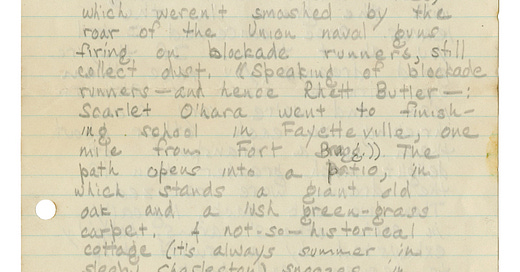 which weren't smashed by the
roar of the Union naval guns
firing on blockade runners, still
collect dust. ((Speaking of blockade
runners—and hence Rhett Butler—:
Scarlet O'hara went to finish-
ing school in Fayetteville, one
mile from Fort Bragg.)) The
path opens into a patio, in
which stands a giant old
oak and a lush green-grass
carpet. A not-so-historical
cottage (it's always summer in
sleepy Charleston) snoozes in